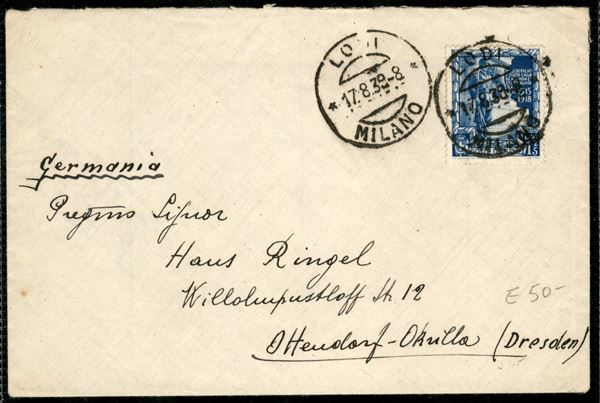 LODI
17.8.38-8
MILANO
LODI
17.8.38-8
MILANO
1915
1918
Germania
Pregmo Signor
Hans Ringel
Willohnpustloff Str. 12
E 50-
Ottendorf-Okrilla (Dresden)